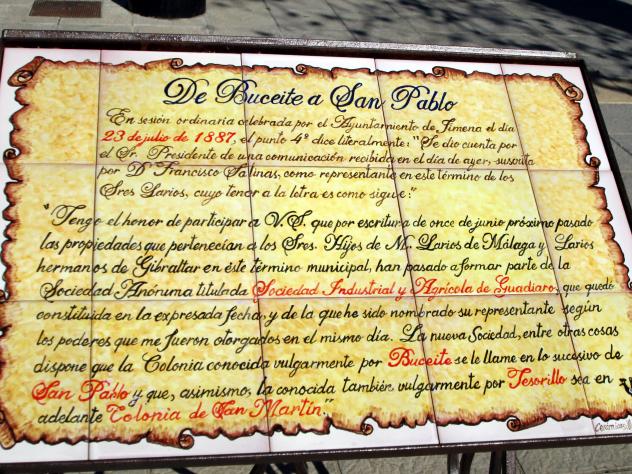 De Buceite a San Pablo
En sesión ordinaria celebrada por el Ayuntamiento de Jimena el día
23 de julio de 1887, el punto 4º dice literalmente: "Se dio cuenta por
el Sr. Presidente de una comunicación recibida en el día de ayer, suscrita
por Dº Francisco Salinas, como representante en este término de los
Sres Larios, cuyo tenor a la letra es como sigue:"
"Tengo el honor de participar a V.S. que por escritura de once de junio próximo pasado
las propiedades que pertenecían a los Sres. Hijos de M. Larios de Málaga y Larios
hermanos de Gibraltar en éste término municipal, han pasado a formar parte de la
Sociedad Anónima titulada Sociedad Industrial y Agrícola de Guadiaro, que quedó
constituida en la expresada fecha, y de la que he sido nombrado su representante según
los poderes que me fueron otorgados en el mismo día. La nueva Sociedad, entre otras cosas
dispone que la Colonia conocida vulgarmente por Buceite se le llame en lo sucesivo de
San Pablo y que, asimismo, la conocida también vulgarmente por Tesorillo sea en
adelante Colonia de San Martín."